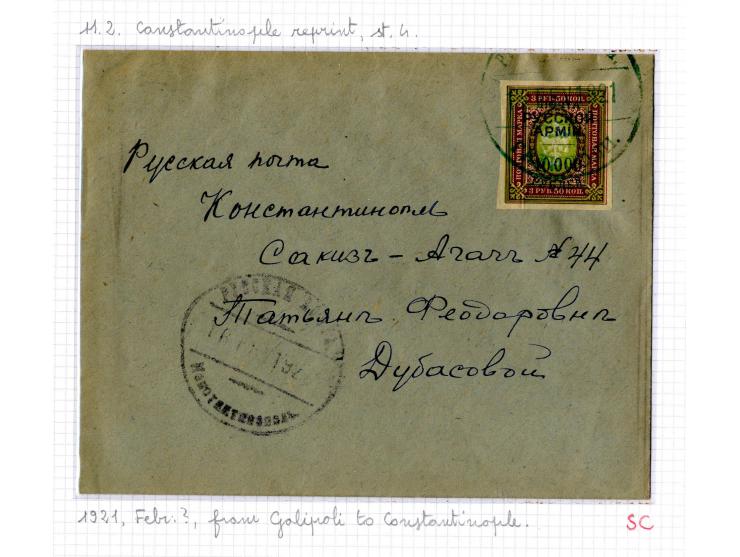 11.2. Constantinople reprint, st. 4.
1921
3 РУБ. 50 КОП.
ПОЧТОВАЯ МАРКА
РУССКОЙ
АРМІИ
10.000
3 РУБ. 50 КОП.
Русская почта
Константинополь
Сакизъ - Агачъ № 44
Татьянѣ Феодоровнѣ
Дубасовой
РУССКАЯ
192
Константинополь
1921, Febr.?, from Galipoli to Constantinople.
SC